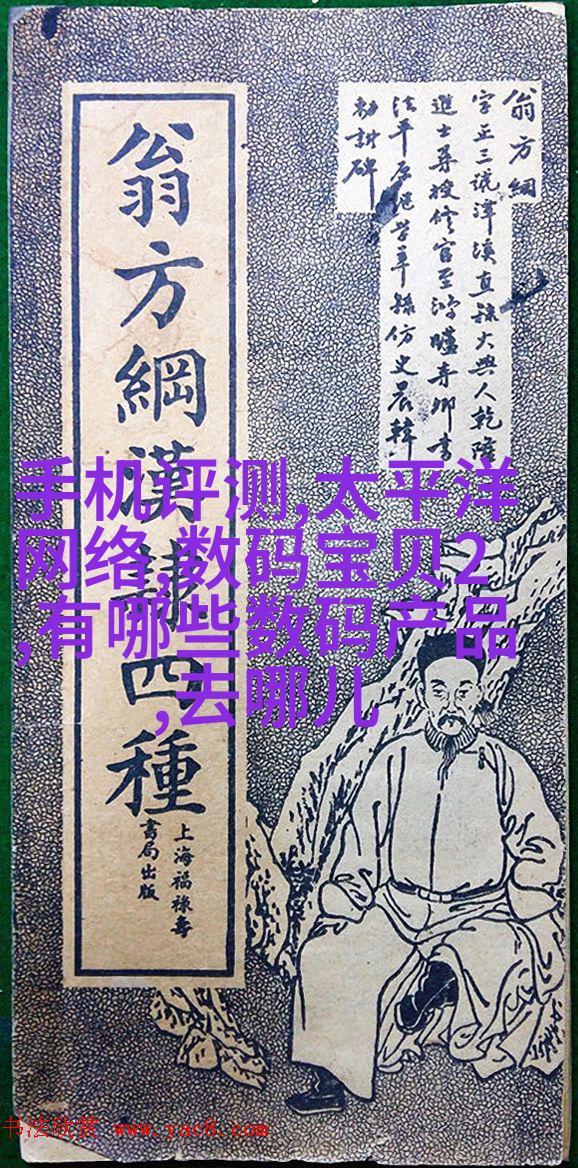 翁方綱
字正三號潭溪直隸大興人乾隆
進士尋授修官至鴻臚寺卿書
法平原仿史晨韓
勅碑
翁方綱漢四種
上海福祿壽
書局出版
手机评测,太平洋
网络,数码宝贝2
,有哪些数码产品
,去哪儿
书法欣赏 www.yac8.com